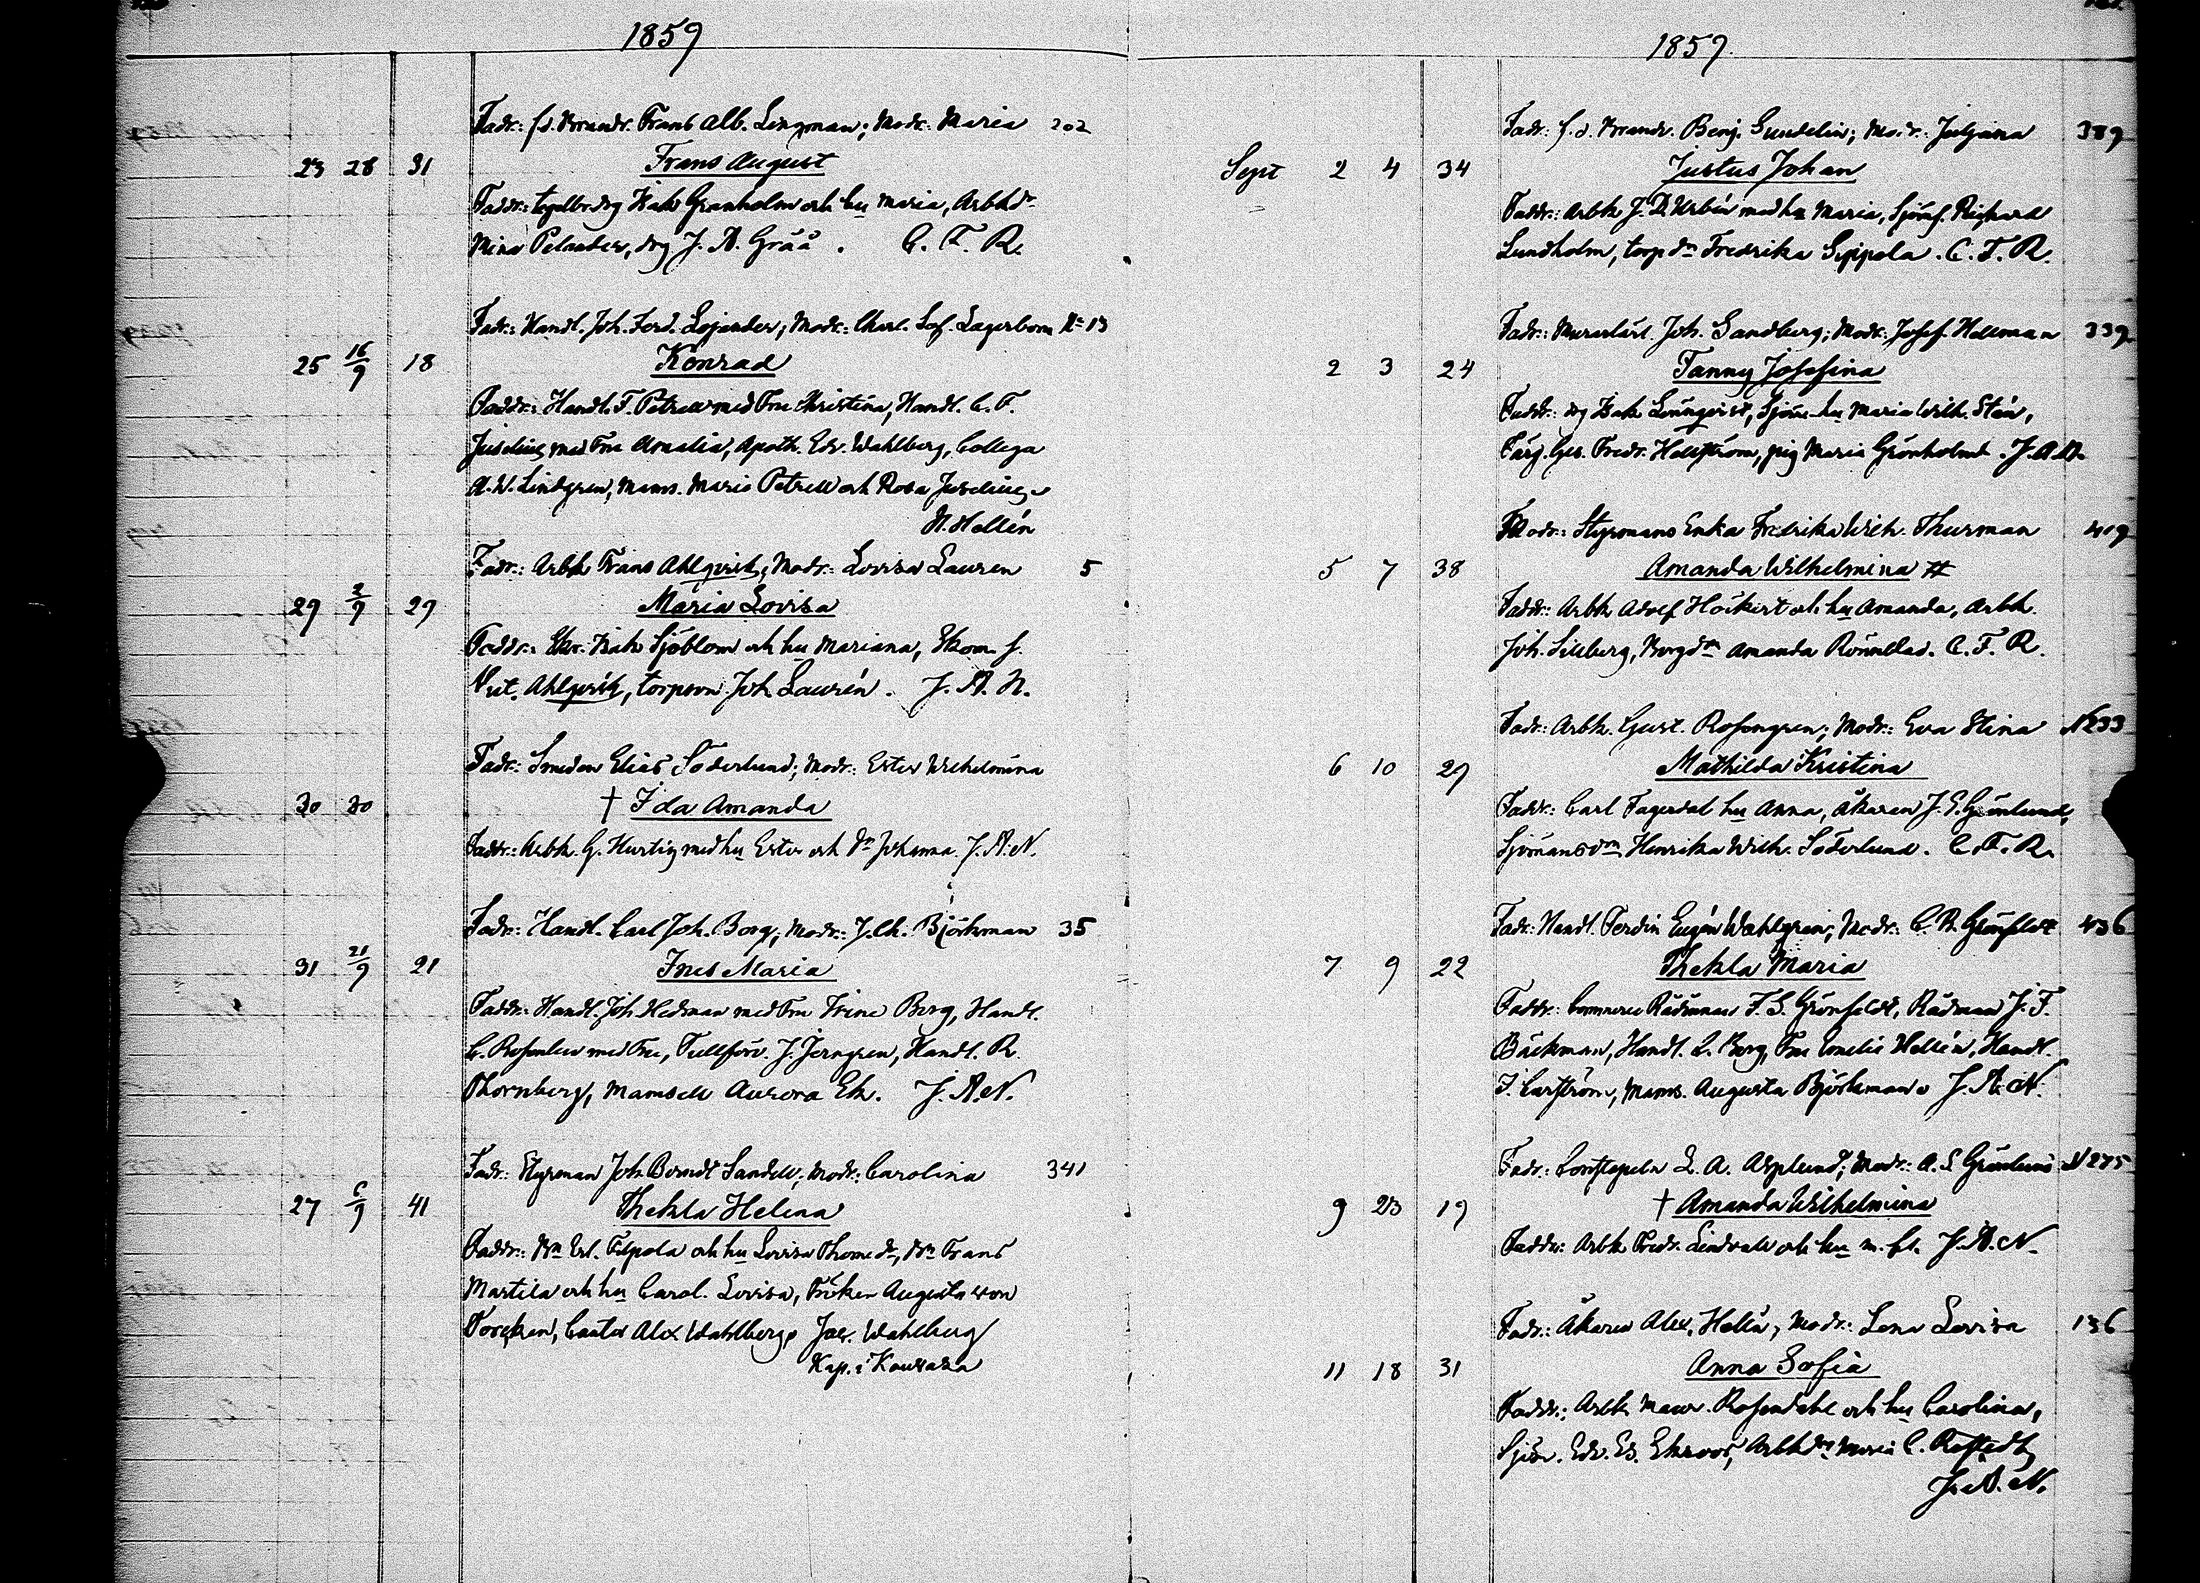 1859
Fadr: fd. Brandv. Frans Alb. Lingman; Modr: Maria 202
23 28 31 Frans August
Faddr: drg Isak Granholm och hu Maria, Arbkdr
Mina Pelander, drg J. A. Grää. C. F. R.
Fadr: Handl. Joh. Ferd. Lojander; Modr: Charl. Sof. Lagerbom N: 13
25 16/9 18 Konrad
Faddr: Handl. F. Petrell med Fru Christina, Handl. C. F.
Juselius med Fru Amalia, Apoth. Edv. Wahlberg, Collega
A. W. Lindgren, Mams. Maria Petrell och Rosa Juselius.
N. Hellén
Fadr: Arbk Frans Ahlqvist, Modr: Lovisa Lauren 5
29 2/9 29 Maria Lovisa
Faddr: Isak Sjöblom och hu Mariana, Skom. f.
Vict. Ahlqvist, torpson Joh Laurén. J. A. N.
Fadr: Smeden Elias Söderlund; Modr: Ester Wilhelmina
30 30 † Ida Amanda
Faddr: Arbk. G. Hurtig med hu Ester och Dn Johanna. J. A. N.
Fadr: Handl. Carl Joh. Borg; Modr: J. Ch. Björkman 35
31 21/9 21 Ines Maria
Faddr: Handl. Joh Hedman med Fru Irine Borg, Handl.
C. Rosenlew med Fru, Tullförv. J. Jerngren, Handl. R.
Thornberg, Mamsell Aurora Ek. J. A. N.
Fadr: Styrman Joh Berndt Sandell, Modr: Carolina 341
27 6/9 41 Thekla Helena
Faddr: Filpola och hu Lovisa Frans
Martila och hu Carol. Lovisa, Fröken Augusta von
Torcken, Cantor Alex Wahlberg. Jac. Wahlberg
Kap. i
1859.
Fadr: f. d. Brandv. Benj. Sundelin; Modr: Juljana 389
Sept 2 4 34 Justus Johan
Faddr: Arbk J. D. Urbén med hu Maria, Sjömf. Rickard
Lundholm, torp dn Fredrika Sippola. C. F. R.
Fadr: Murarlärl. Joh. Sandberg; Modr: Josef. Hellman 339
2 3 24 Fanny Josefina
Faddr: drg Isak Lönnqvist, Sjöm. hu Maria Wilh. Stén,
Färg. Ges. Fredr. Hellström, pig Maria Grönholm. J. A. N.
Modr: Styrmans Enka Fredrika Wilh. Thurman 419
5 7 38 Amanda Wilhelmina #
Faddr: Arbk Adolf Höckert och hu Amanda, Arbk
Joh. Sillberg, Borgdn Amanda Rönnblad. C. F. R.
Fadr: Arbk. Gust. Rosengren; Modr: Eva Stina N 233
6 10 29 Mathilda Kristina
Faddr: Carl Fagerdal hu Anna, Åkaren J. E. Grönlund,
Sjömansdn Henrika Wilh. Söderlund. C. F. R.
Fadr: Handl. Ferdin Eugén Wahlgren; Modr: C. B. Grönfeldt 436
7 9 22 Thekla Maria
Faddr: Commerce Rådman F. S. Grönfeldt, Rådman J. F.
Bäckman, Handl. L. Borg, Fru Emelie Hellén, Handl.
F. Carström, Mams. Augusta Björkman. J. A. N.
Fadr: L. A. Asplund; Modr: A. S. Grönlund N 275
9 23 19 † Amanda Wilhelmina
Faddr: Arbk Fredr. Lindvall och hu m. fl. J. A. N.
Fadr: Åkaren Alex. Hellén; Modr: Lena Lovisa 136
11 18 31 Anna Sofia
Faddr: Arbk Maur. Rosendahl och hu Carolina,
Sjöm. Edv. Es. Ekroos, Arbkdn Maria C. Rostedt
J. A. N.